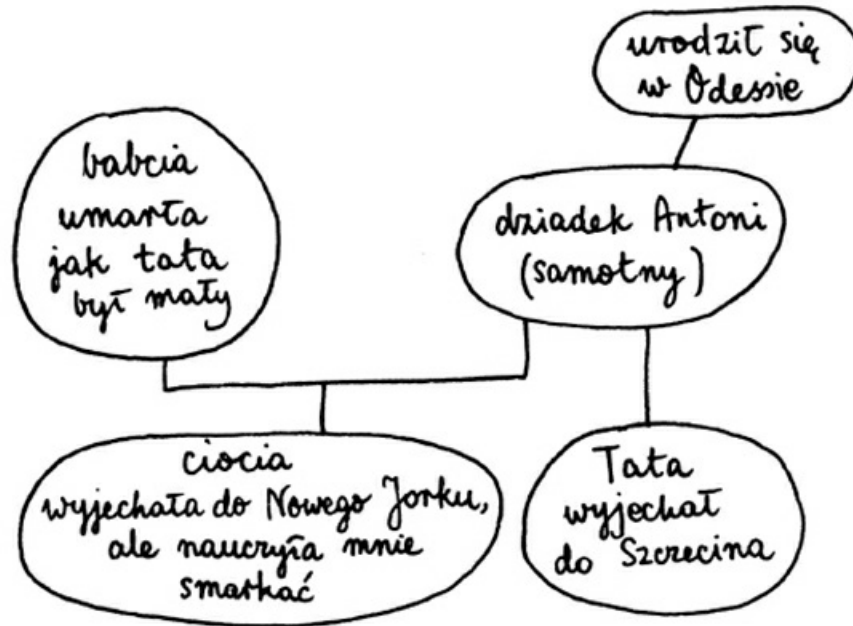 urodził się
w Odessie
babcia
umarła
jak tata
był mały
dziadek Antoni
(samotny)
ciocia
wyjechała do Nowego Jorku,
ale nauczyła mnie
smarkać
Tata
wyjechał
do Szczecina